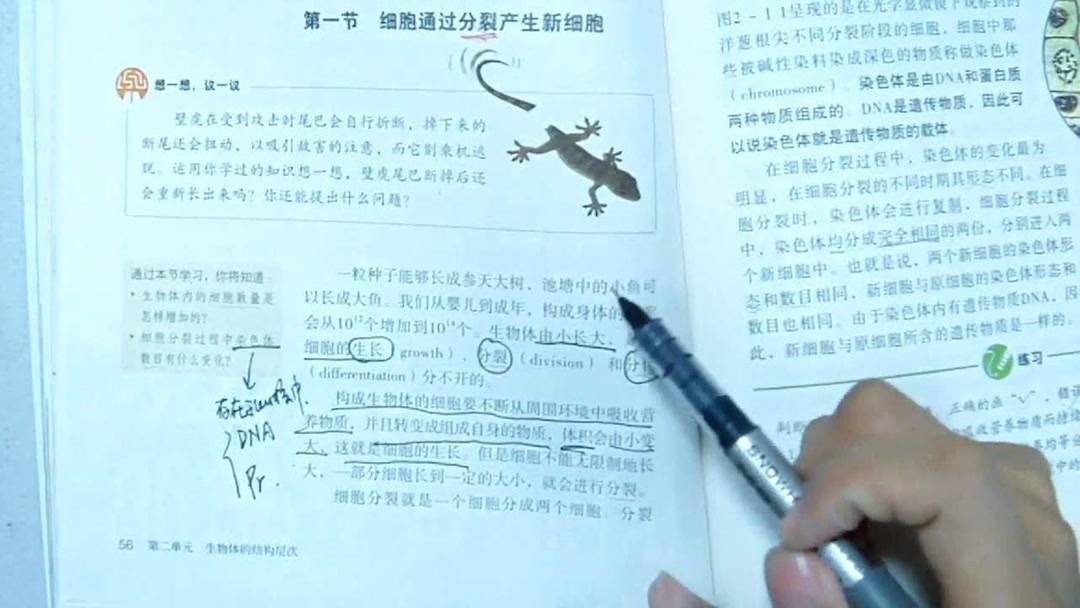 第一节 细胞通过分裂产生新细胞
想一想,议一议
壁虎在受到攻击时尾巴会自行折断,掉下来的
断尾还会扭动,以吸引敌害的注意,而它则乘机逃
脱。运用你学过的知识想一想,壁虎尾巴断掉后还
会重新长出来吗?你还能提出什么问题?
通过本节学习,你将知道
• 生物体内的细胞数量是
怎样增加的?
• 细胞分裂过程中染色体
数目有什么变化?
存在 中.
DNA
Pr.
一粒种子能够长成参天大树,池塘中的小鱼可
以长成大鱼。我们从婴儿到成年,构成身体的
会从10¹²个增加到10¹⁴个。生物体由小长大,
细胞的生长 growth)、分裂(division)和分
(differentiation)分不开的。
构成生物体的细胞要不断从周围环境中吸收营
养物质,并且转变成组成自身的物质,体积会由小变
大,这就是细胞的生长。但是细胞不能无限制地长
大,一部分细胞长到一定的大小,就会进行分裂。
细胞分裂就是一个细胞分成两个细胞。分裂
56 第二单元 生物体的结构层次
图2-11呈现的是在光学显微镜下观察到的
洋葱根尖不同分裂阶段的细胞,细胞中那
些被碱性染料染成深色的物质称做染色体
(chromosome)。染色体是由DNA和蛋白质
两种物质组成的。DNA是遗传物质,因此可
以说染色体就是遗传物质的载体。
在细胞分裂过程中,染色体的变化最为
明显,在细胞分裂的不同时期其形态不同。在细
胞分裂时,染色体会进行复制,细胞分裂过程
中,染色体均分成完全相同的两份,分别进入两
个新细胞中。也就是说,两个新细胞的染色体形
态和数目相同,新细胞与原细胞的染色体形态和
数目也相同。由于染色体内有遗传物质DNA,因
此,新细胞与原细胞所含的遗传物质是一样的。
练习
判断
正确的画“√”,错误
吸收营养物质而持续
SNOW